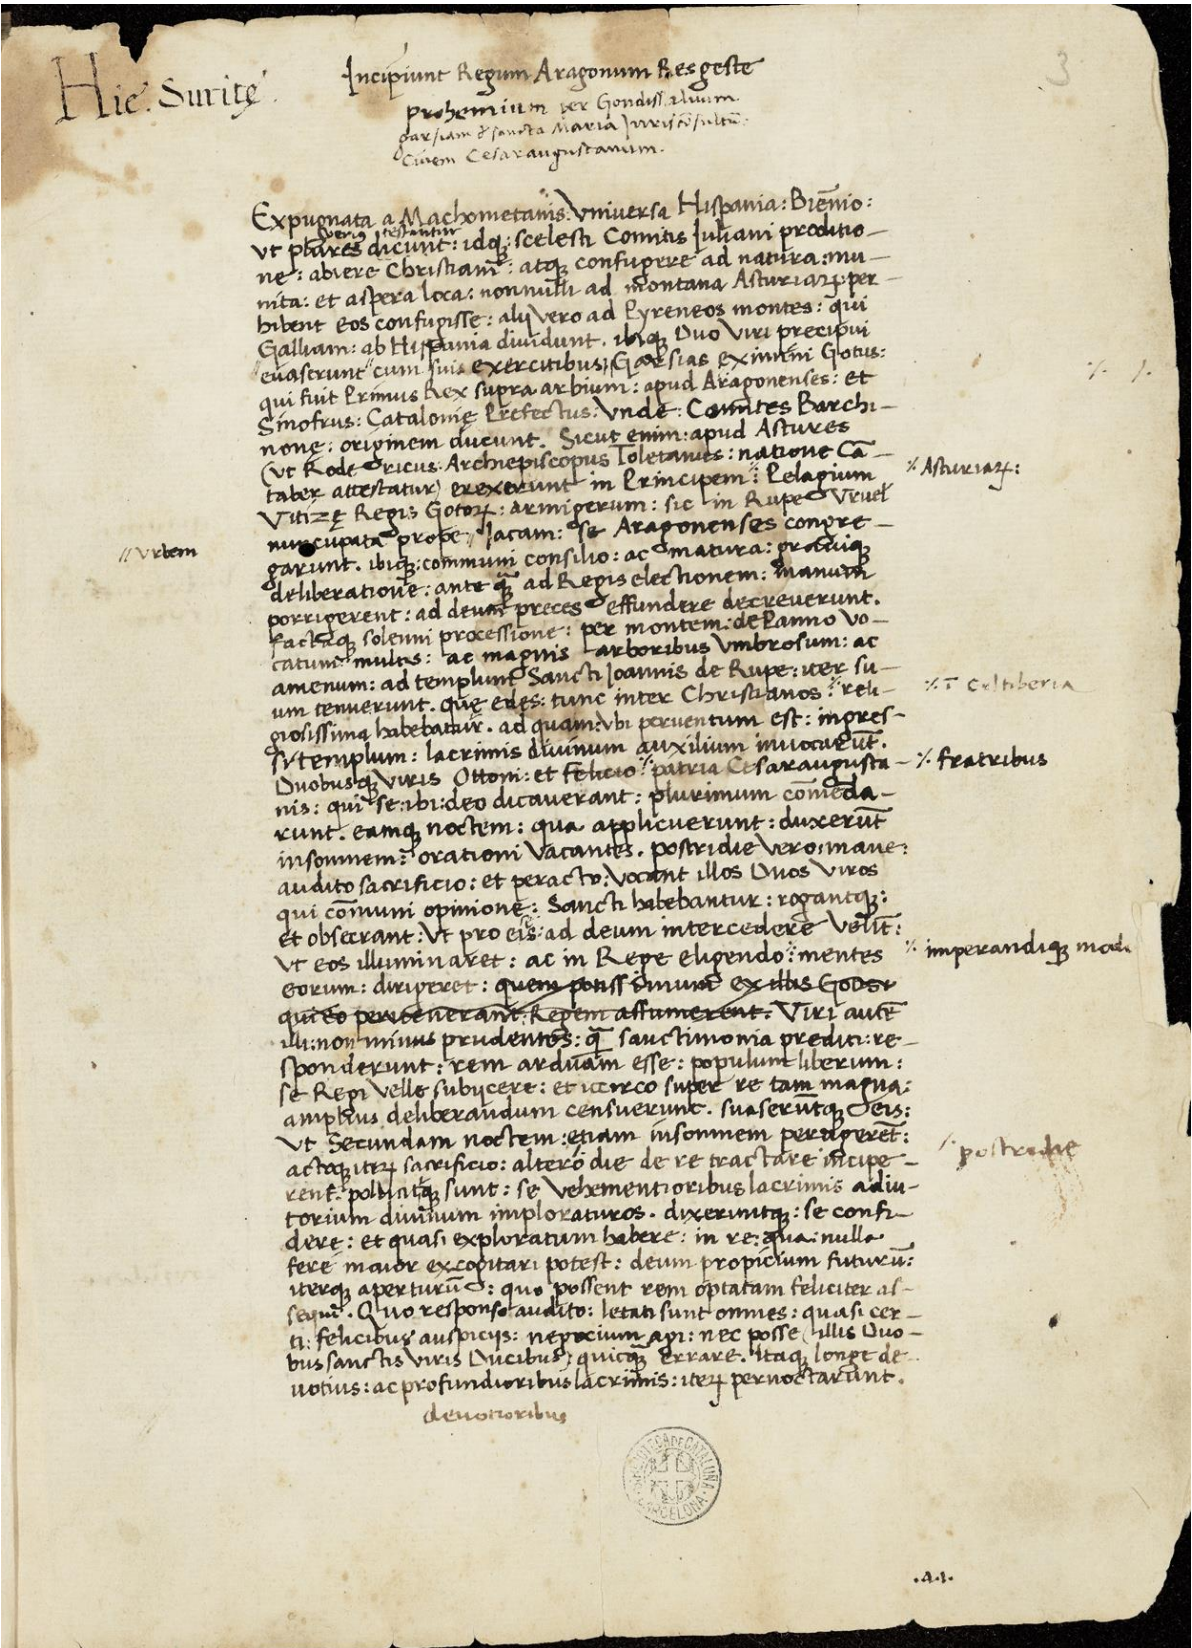 Hie. Suritę
3
Incipiunt Regum Aragonum Res geste
prohemium per Gondissaluum
garsiam d' sancta Maria Juriscōsultū:
Ciuem Cesaraugustanum.
Expugnata a Machometanis: Vniversa Hispania: Biēnio:
verius testantur
Vt plures dicunt: idq; scelesti Comitis Juliani proditio-
ne: abiere Christiani: atq; confugere ad natura: mu-
nita: et aspera loca: nonnulli ad montana Asturiaꝝ: per-
hibent eos confugisse: alij vero ad Pyreneos montes: qui
Galliam: ab Hispania dividunt. ibiq; Duo Viri precipui
euaserunt cum suis exercitibus, Garsias eximini Gotus:
qui fuit Primus Rex supra arbium: apud Aragonenses: et
Sinofrus: Catalonię Prefectus: Vnde: Comites Barchi-
nonę: originem ducunt. Sicut enim: apud Astures
(Vt Rodericus Archiepiscopus Toletanus: natione Cā-
taber attestatur) erexerunt in Principem: Pelagium
⁒ Asturiaꝝ:
Vitizę Regis Gotoꝝ: armigerum: sic in Rupe Vruel
nuncupata prope // Jacam: se Aragonenses congre-
// Vrbem
garunt. ibiq; communi consilio: ac matura: graviq;
deliberatione: ante q̄ ad Regis electionem: manum
porrigerent: ad deum preces effundere decreverunt.
factaq; solenni processione: per montem: de Panno vo-
catum multis: ac magnis arboribus Vmbrosum: ac
amenum: ad templum Sancti Joannis de Rupe: iter su-
um tenuerunt. Quę edes: tunc inter Christianos ⁒ reli-
⁒ ī Celtiberia
giosissima habebatur. ad quam: vbi perventum est: ingres-
si templum: lacrimis divinum auxilium invocarūt.
Duobusq; Viris Ottoni: et felicio ⁒ patria Cesaraugusta-
⁒ fratribus
nis: qui se: ibi: deo dicaverant: plurimum cōmēda-
runt. eamq; noctem: qua applicuerunt: duxerūt
insomnem: orationi Vacantes. postridie Vero: mane:
audito sacrificio: et peracto: Vocant illos Duos Viros
qui cōmuni opinione: Sancti habebantur: rogantq;:
et obsecrant: Vt pro eis: ad deum intercedere Velīt:
Vt eos illuminaret: ac in Rege eligendo ⁒ mentes
⁒ imperandiq; modo
eorum: dirigeret: quem potissimum ex illis Gotis:
qui eo pervenerant: Regem assumerent. Viri autē
illi: non minus prudentes: q̄ sanctimonia prediti: re-
sponderunt: rem arduam esse: populum liberum:
se Regi Velle subijcere: et iccirco super re tam magna:
amplius deliberandum censuerunt. suaserūtq; eis:
Vt Secundam noctem: etiam insomnem peragerēt:
actoq; iteꝝ sacrificio: altero die de re tractare incipe-
⁒ postridie
rent. pollicitiq; sunt: se Vehementioribus lacrimis adiu-
torium divinum imploraturos. dixeruntq;: se confi-
dere: et quasi exploratum habere: in re: qua: nulla
fere maior excogitari potest: deum propicium futurū:
iterq; aperturū: quo possent rem optatam feliciter as-
sequi. Quo responso audito: letati sunt omnes: quasi cer-
ti: felicibus auspicijs: negocium agi: nec posse (illis Duo-
bus sanctis Viris Ducibus) quicq̄ errare. Itaq; longe de-
uotius: ac profundioribus lacrimis: iteꝝ pernoctarunt.
deuotioribus
BIBLIOTECA DE CATALUÑA · BARCELONA ·
.A.1.